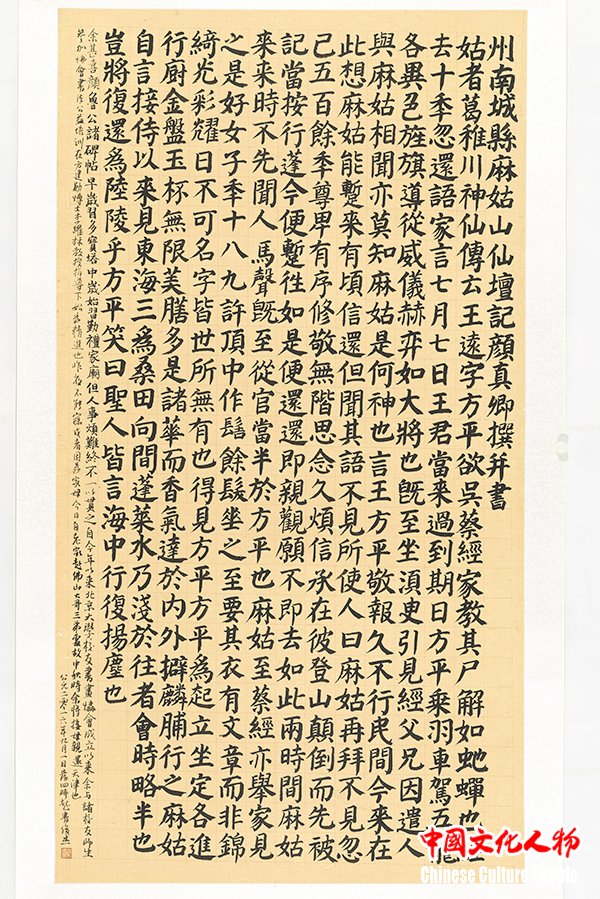 州南城縣麻姑山仙壇記顏真卿撰幷書
姑者葛稚川神仙傳云王遠字方平欲吳蔡經家教其尸解如虵蟬也經
去十季忽還語家言七月七日王君當来過到期日方平乘羽車駕五龍
各異色旌旗導從威儀赫弈如大將也旣至坐湏臾引見經父兄因遣人
與麻姑相聞亦莫知麻姑是何神也言王方平敬報久不行民間今来在
此想麻姑能蹔来有頃信還但聞其語不見所使人曰麻姑再拜不見忽
已五百餘季尊卑有序修敬無階思念久煩信承在彼登山顛倒而先被
記當按行蓬今便蹔往如是便還還即親觀願不即去如此兩時間麻姑
来来時不先聞人馬聲旣至從官當半於方平也麻姑至蔡經亦舉家見
之是好女子季十八九許頂中作髻餘髮坐之至要其衣有文章而非錦
綺光彩耀日不可名字皆世所無有也得見方平方平爲起立坐定各進
行廚金盤玉杯無限美膳多是諸華而香氣達於内外擗麟脯行之麻姑
自言接侍以来見東海三爲桑田向間蓬萊水乃淺於往者會時略半也
豈將復還爲陸陵乎方平笑曰聖人皆言海中行復揚塵也
余其喜顏魯公諸碑帖早歲習多寶塔中歲始習勤禮家廟但人事煩難終不一以貫之自今年以來北京大學校友書畫協會成立以來余與諸校友師生
參加協會書法公益培訓在方建勛博士李躍林教授指導下始爲精進也昨夜不能寐今日自老家赴佛山大哥三弟處故中秋時余將接母親還天津也
公元二零一六年九月一日
中國文化人物
Chinese Culture People